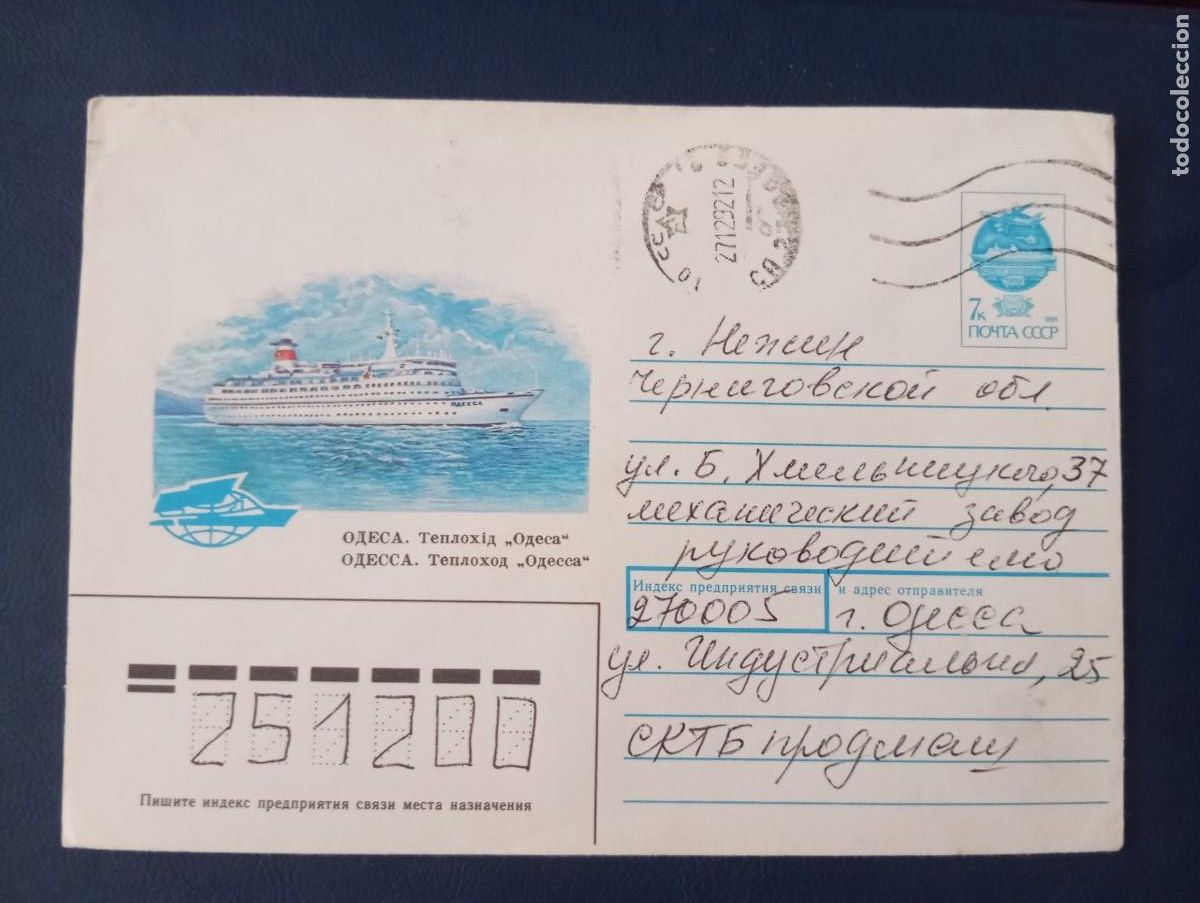 todocoleccion
27129212
7к
1991
ПОЧТА СССР
г. Нежин
Черниговской обл.
ул. Б. Хмельницкого, 37
механический завод
ОДЕСА. Теплохід „Одеса“
ОДЕССА. Теплоход „Одесса“
ОДЕССА
Индекс предприятия связи и адрес отправителя
270005 г. Одесса
ул. Индустриальная, 25
СКТБ продмаш
251200
Пишите индекс предприятия связи места назначения